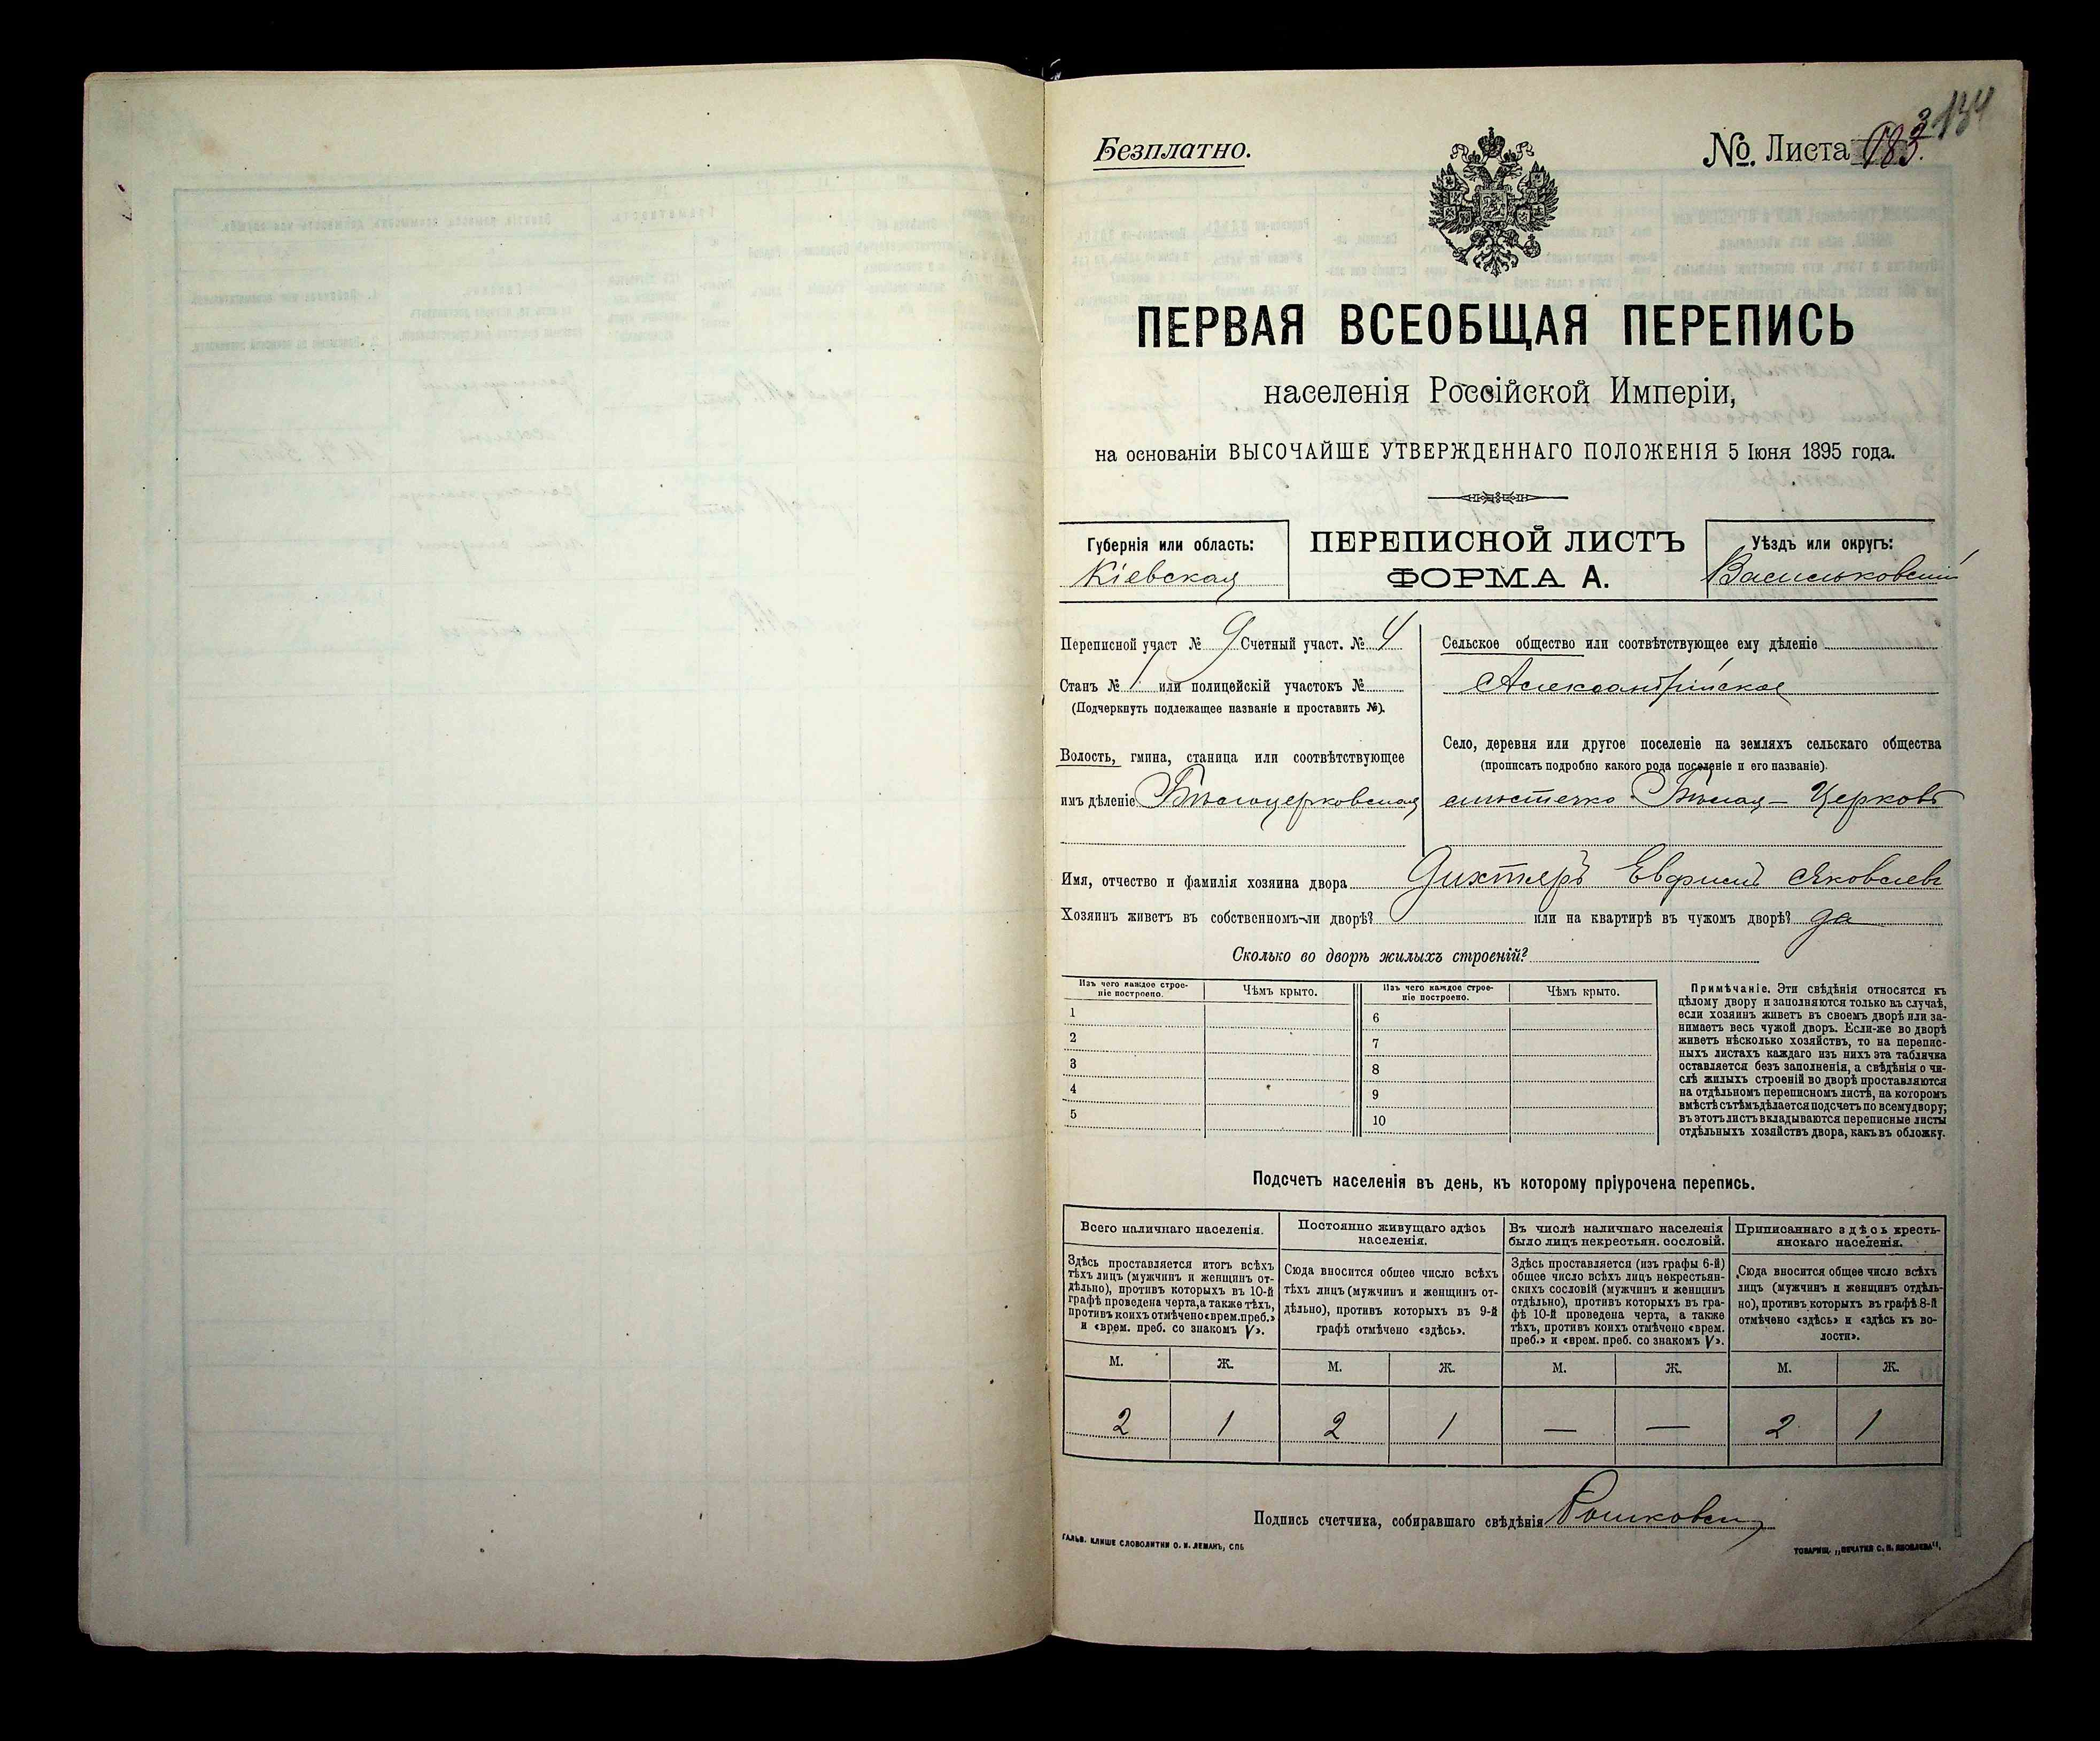 Безплатно.
№ Листа 183.
134
ПЕРВАЯ ВСЕОБЩАЯ ПЕРЕПИСЬ
населенія Россійской Имперіи,
на основаніи ВЫСОЧАЙШЕ УТВЕРЖДЕННАГО ПОЛОЖЕНІЯ 5 Іюня 1895 года.
Губернія или область:
Кіевская
ПЕРЕПИСНОЙ ЛИСТЪ
ФОРМА А.
Уѣздъ или округъ:
Васильковскій
Переписной участ № 9 Счетный участ. № 4
Станъ № 1 или полицейскій участокъ №
(Подчеркнуть подлежащее названіе и проставить №).
Волость, гмина, станица или соотвѣтствующее
имъ дѣленіе Бѣлоцерковская
Сельское общество или соотвѣтствующее ему дѣленіе
Александрійское
Село, деревня или другое поселеніе на земляхъ сельскаго общества
(прописать подробно какого рода поселеніе и его названіе).
мѣстечко Бѣлая-Церковь
Имя, отчество и фамилія хозяина двора Дихтяръ Евфимъ Яковлевъ
Хозяинъ живетъ въ собственномъ-ли дворѣ? или на квартирѣ въ чужомъ дворѣ? да
Сколько во дворѣ жилыхъ строеній?
Изъ чего каждое строе-
ніе построено.
Чѣмъ крыто.
Изъ чего каждое строе-
ніе построено.
Чѣмъ крыто.
1
2
3
4
5
6
7
8
9
10
Примѣчаніе. Эти свѣдѣнія относятся къ
цѣлому двору и заполняются только въ случаѣ,
если хозяинъ живетъ въ своемъ дворѣ или за-
нимаетъ весь чужой дворъ. Если-же во дворѣ
живетъ нѣсколько хозяйствъ, то на перепис-
ныхъ листахъ каждаго изъ нихъ эта табличка
оставляется безъ заполненія, а свѣдѣнія о чи-
слѣ жилыхъ строеній во дворѣ проставляются
на отдѣльномъ переписномъ листѣ, на которомъ
вмѣстѣ съ тѣмъ дѣлается подсчетъ по всему двору;
въ этотъ листъ вкладываются переписные листы
отдѣльныхъ хозяйствъ двора, какъ въ обложку.
Подсчетъ населенія въ день, къ которому пріурочена перепись.
Всего наличнаго населенія.
Здѣсь проставляется итогъ всѣхъ
тѣхъ лицъ (мужчинъ и женщинъ от-
дѣльно), противъ которыхъ въ 10-й
графѣ проведена черта, а также тѣхъ,
противъ коихъ отмѣчено «врем. преб.»
и «врем. преб. со знакомъ V».
Постоянно живущаго здѣсь
населенія.
Сюда вносится общее число всѣхъ
тѣхъ лицъ (мужчинъ и женщинъ от-
дѣльно), противъ которыхъ въ 9-й
графѣ отмѣчено «здѣсь».
Въ числѣ наличнаго населенія
было лицъ некрестьян. сословій.
Здѣсь проставляется (изъ графы 6-й)
общее число всѣхъ лицъ некрестьян-
скихъ сословій (мужчинъ и женщинъ
отдѣльно), противъ которыхъ въ гра-
фѣ 10-й проведена черта, а также
тѣхъ, противъ коихъ отмѣчено «врем.
преб.» и «врем. преб. со знакомъ V».
Приписаннаго здѣсь кресть-
янскаго населенія.
Сюда вносится общее число всѣхъ
лицъ (мужчинъ и женщинъ отдѣль-
но), противъ которыхъ въ графѣ 8-й
отмѣчено «здѣсь» и «здѣсь къ во-
лости».
М. Ж. М. Ж. М. Ж. М. Ж.
2 1 2 1 — — 2 1
Подпись счетчика, собиравшаго свѣдѣнія
ГАЛЬВ. КЛИШЕ СЛОВОЛИТНИ О. И. ЛЕМАНЪ, СПБ
ТОВАРИЩ. „ПЕЧАТНЯ С. П. ЯКОВЛЕВА".